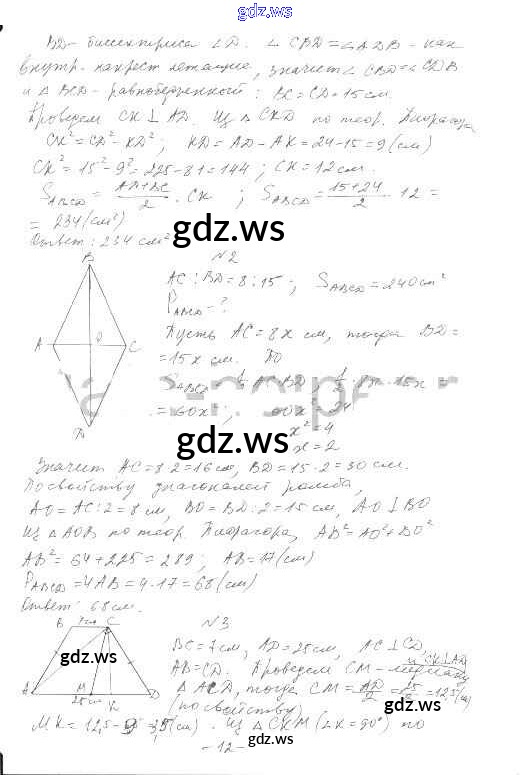 gdz.ws
BD - биссектриса ∠D. ∠CBD = ∠ADB - как
внутр. накрест лежащие, значит ∠CBD = ∠CDB
и △BCD - равнобедренный: BC = CD = 15 см.
Проведем CK ⊥ AD. Из △CKD по теор. Пифагора
CK² = CD² - KD²; KD = AD - AK = 24 - 15 = 9 (см)
CK² = 15² - 9² = 225 - 81 = 144; CK = 12 см.
S_ABCD = (AD+BC)/2 · CK; S_ABCD = (15+24)/2 · 12 =
= 234 (см²)
Ответ: 234 см²
gdz.ws
N2
B
AC : BD = 8 : 15; S_ABCD = 240 см²
P_ABCD - ?
A O C
Пусть AC = 8x см, тогда BD =
= 15x см. По
S_ABCD = 1/2 AC · BD, 1/2 · 8x · 15x =
= 60x²; 60x² = 24
x² = 4
D
x = 2
gdz.ws
Значит AC = 8·2 = 16 см, BD = 15·2 = 30 см.
По свойству диагоналей ромба,
AO = AC : 2 = 8 см, BO = BD : 2 = 15 см, AO ⊥ BO
Из △AOB по теор. Пифагора, AB² = AO² + BO²
AB² = 64 + 225 = 289; AB = 17 (см)
P_ABCD = 4AB = 4·17 = 68 (см)
Ответ: 68 см.
N3
B 7см C
BC = 7 см, AD = 25 см, AC ⊥ CD,
AB = CD. Проведем CM - медиану
и CK ⊥ AD
△ACD, тогда CM = AD/2 = 25/2 = 12,5 (см)
A M K D
25 см
(по свойству)
MK = 12,5 - 9 = 3,5 (см). Из △CKM (∠K = 90°) по
- 12 -
gdz.ws
gdz.ws
gdz.ws